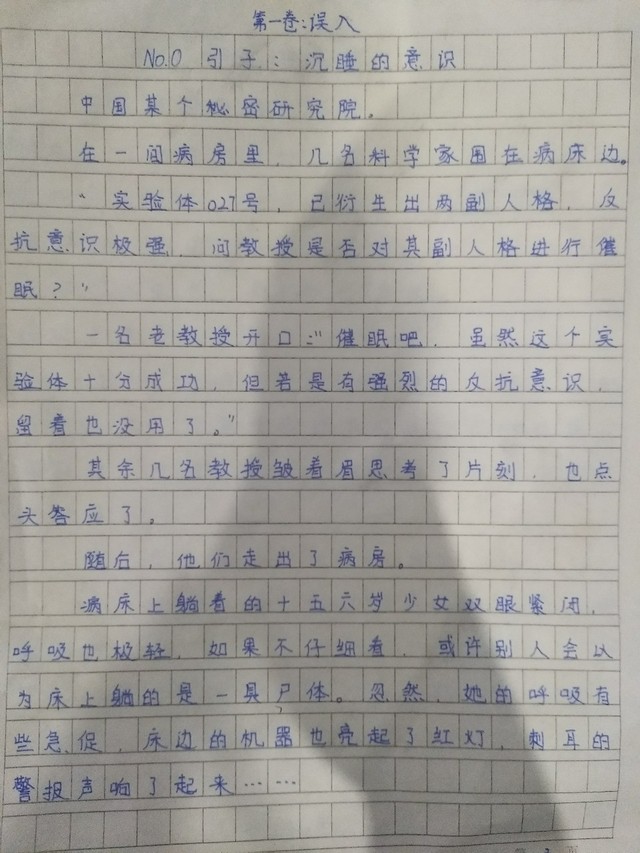 第一卷:误入
No.0 引子:沉睡的意识
中国某个秘密研究院。
在一间病房里,几名科学家围在病床边。
“实验体027号,已衍生出两副人格,反
抗意识极强,问教授是否对其副人格进行催
眠?”
一名老教授开口:“催眠吧,虽然这个实
验体十分成功,但若是有强烈的反抗意识,
留着也没用了。”
其余几名教授皱着眉思考了片刻,也点
头答应了。
随后,他们走出了病房。
病床上躺着的十五六岁少女双眼紧闭,
呼吸也极轻,如果不仔细看,或许别人会以
为床上躺的是一具尸体。忽然,她的呼吸有
些急促,床边的机器也亮起了红灯,刺耳的
警报声响了起来……